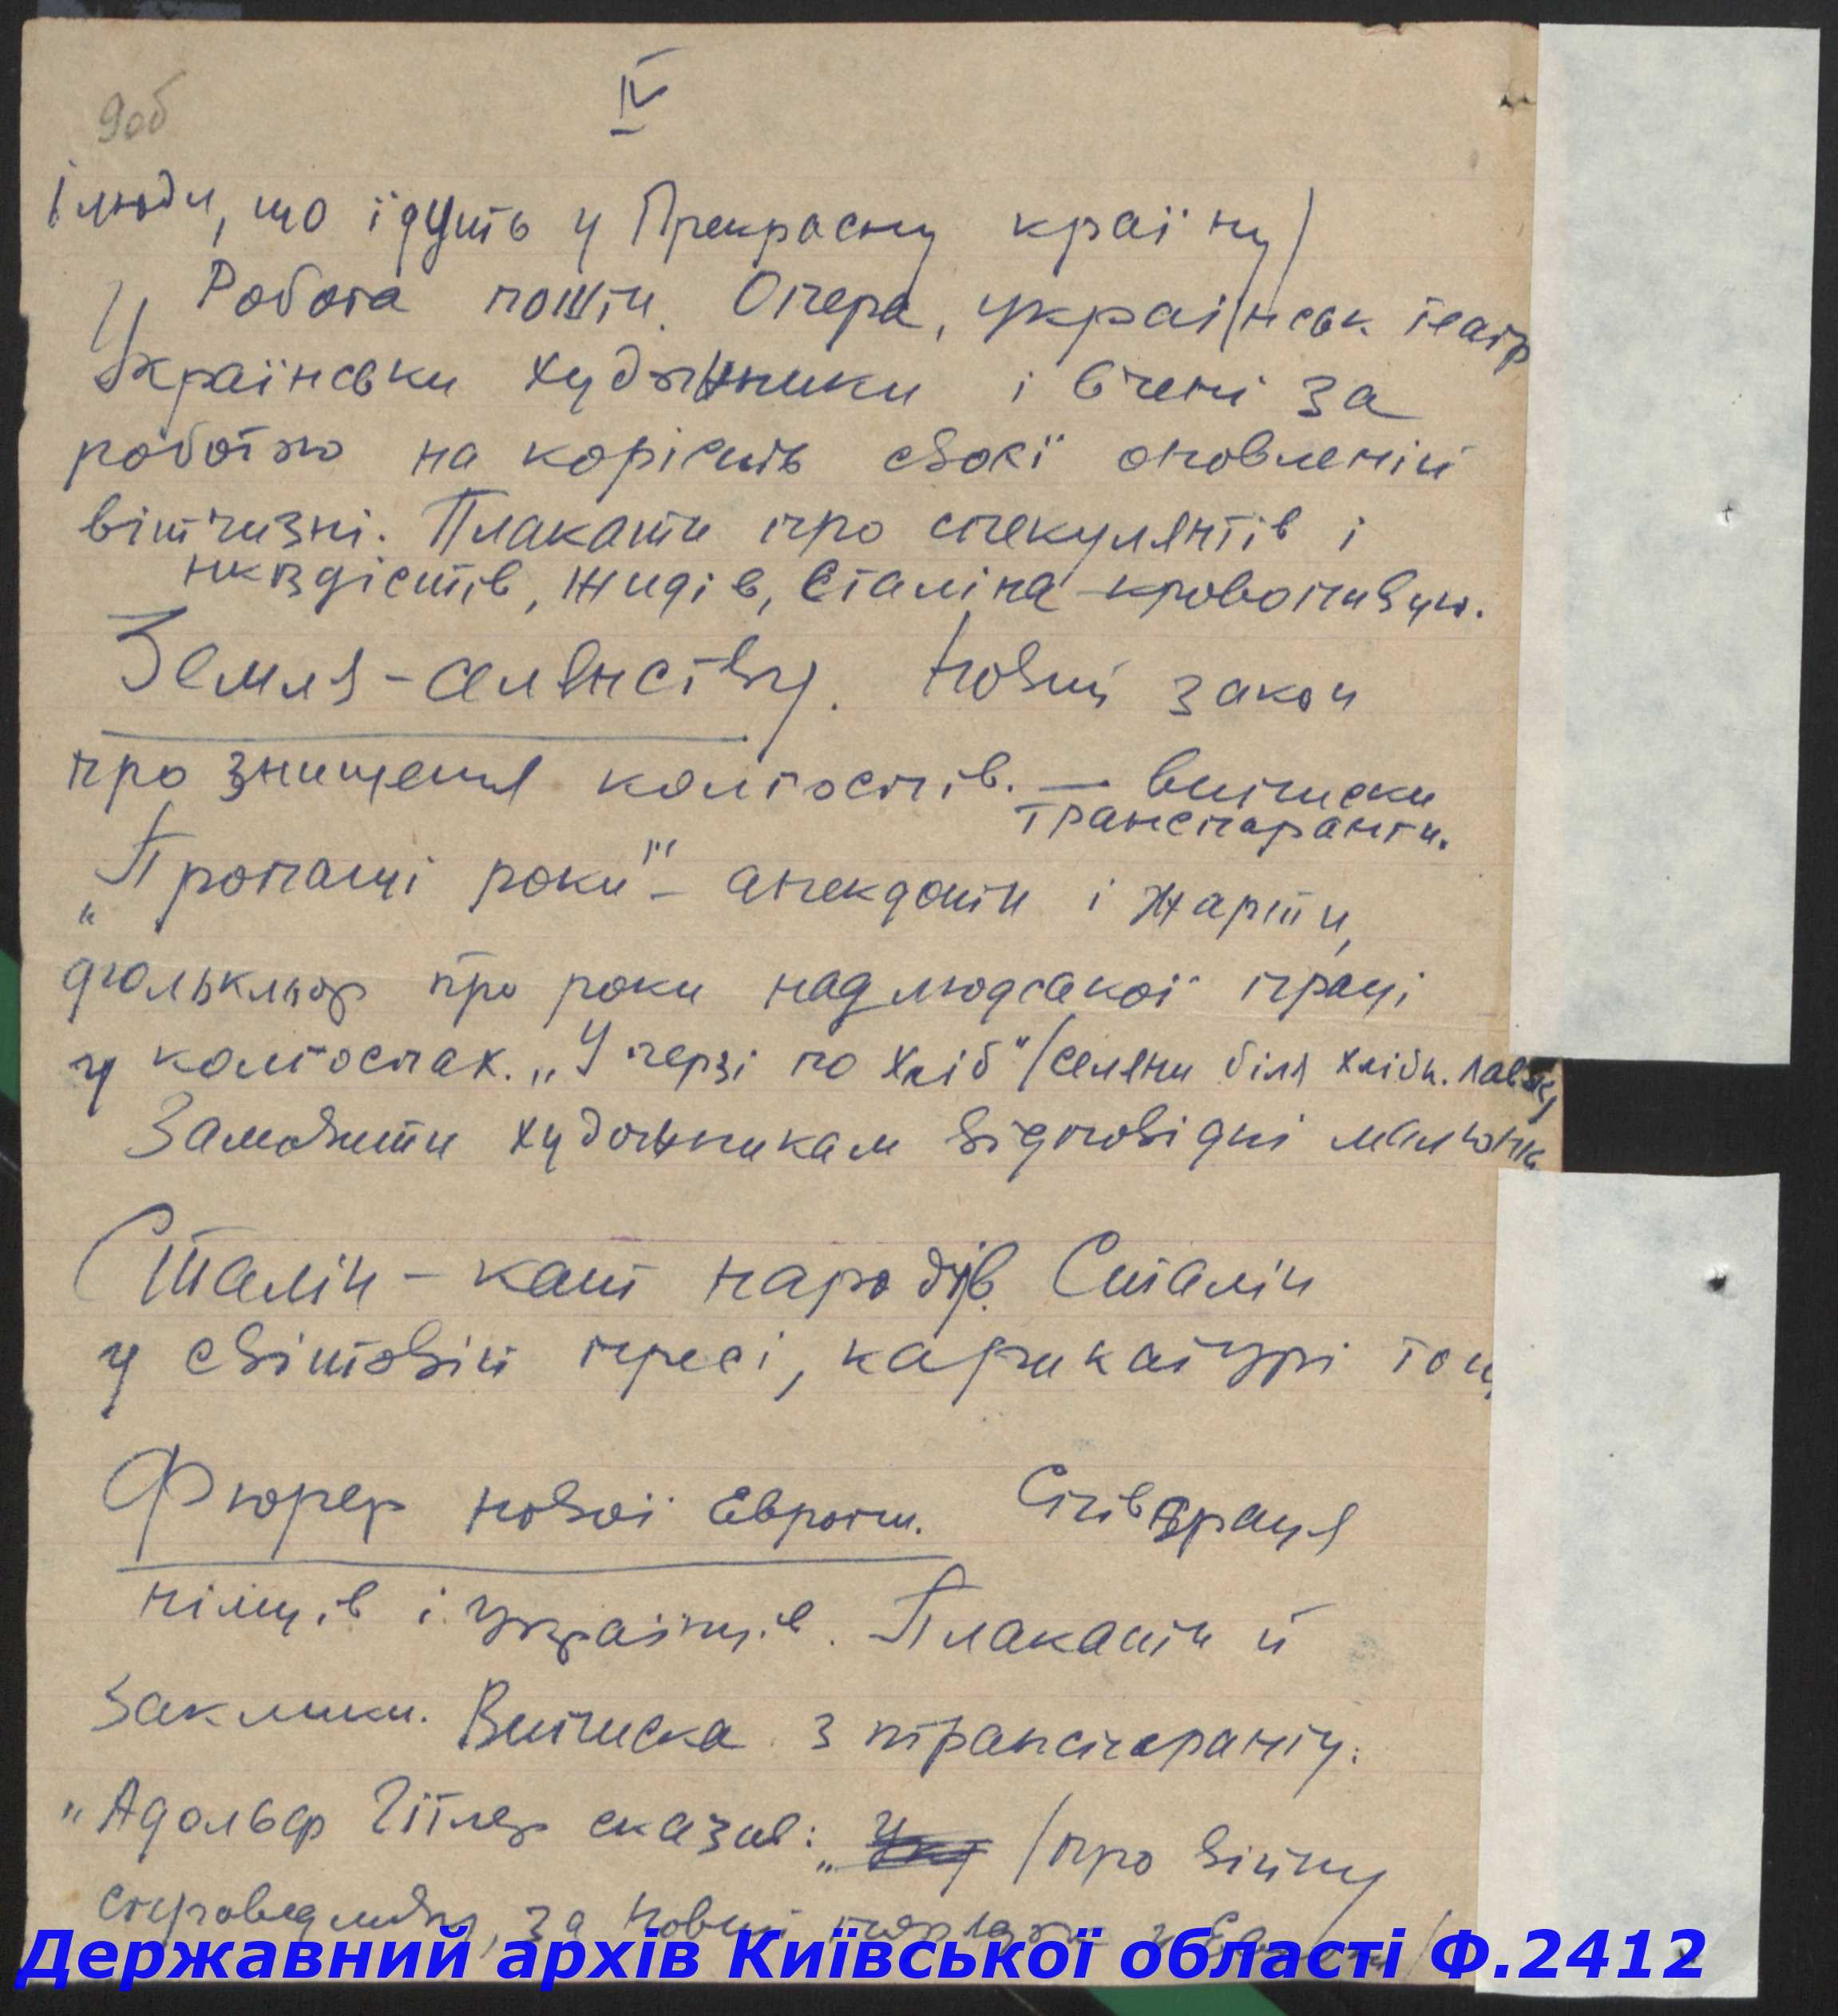 9об
IV
і люди, що їдуть у Прекрасну країну/
Робота пошти. Опера, українськ театр
Українськи художники і вчені за
роботою на корість своєї оновленій
вітчизні. Плакати про спекулянтів і
нквдістів, жидів, Сталіна-кровопивцю.
Земля-селянству. Новий закон
про знищення колгоспів. — виписки
транспаранти.
„Пропащі роки" – анекдоти і жарти,
фолькльор про роки надлюдсакої праці
у колгоспах. „У черзі по хліб" /селяни біля хлібн. лавки
Замовити художникам відповідні малюнк
Сталін – кат народів. Сталін
у світовій пресі, карикатурі тощ
Фюрер нової Европи. Співпраця
німців і українців. Плакати й
заклики. Виписка з транспаранту:
„Адольф Гітлер сказав: „ /про війну
справедливу, за новий порядок в
Державний архів Київської області Ф.2412